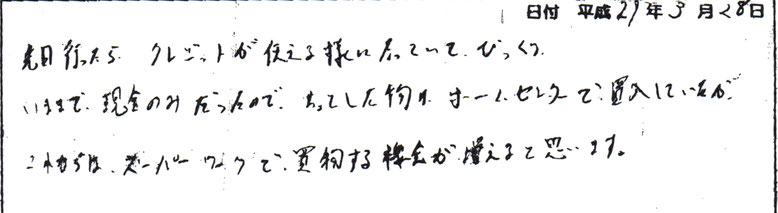 日付 平成29年3月28日
先日行ったら、クレジットが使える様になっていて、びっくり。
いままで、現金のみだったので、ちょっとした物は、ホームセンターで、買入していたが、
これからは、スーパーワークで、買物する機会が、増えると思います。